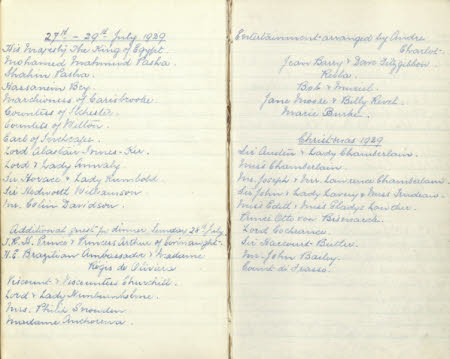 27th - 29th July 1929
His Majesty The King of Egypt.
Mohamed Mahmud Pasha.
Shahin Pasha.
Hassanein Bey.
Marchioness of Carisbrooke.
Countess of Ilchester.
Countess of Wilton.
Earl of Inchcape.
Lord Alastair-Innes-Ker.
Lord & Lady Annaly.
Sir Horace & Lady Rumbold.
Sir Hedworth Williamson.
Mr. Colin Davidson.
Additional guests for dinner, Sunday 28th July
T.R.H. Prince & Princess Arthur of Connaught.
H.E. Brazilian Ambassador & Madame
Regis de Oliveira
Viscount & Viscountess Churchill.
Lord & Lady Nunburnholme.
Mrs. Philip Snowden
Madame Anchorena.
Entertainment arranged by Andre
Charlot.
Jean Barry & Dave Fitzgibbon
Rebla.
Bob & Muriel.
Jane Moore & Billy Revel.
Marie Burke.
Christmas 1929
Sir Austen & Lady Chamberlain.
Miss Chamberlain.
Mr. Joseph & Mr. Lawrence Chamberlain.
Sir John & Lady Lavery & Miss Trudeau.
Miss Edith & Miss Gladys
Prince Otto von Bismarck.
Lord Cochrane.
Sir Harcourt Butler.
Mr. John Bailey.
Count de Frasso.